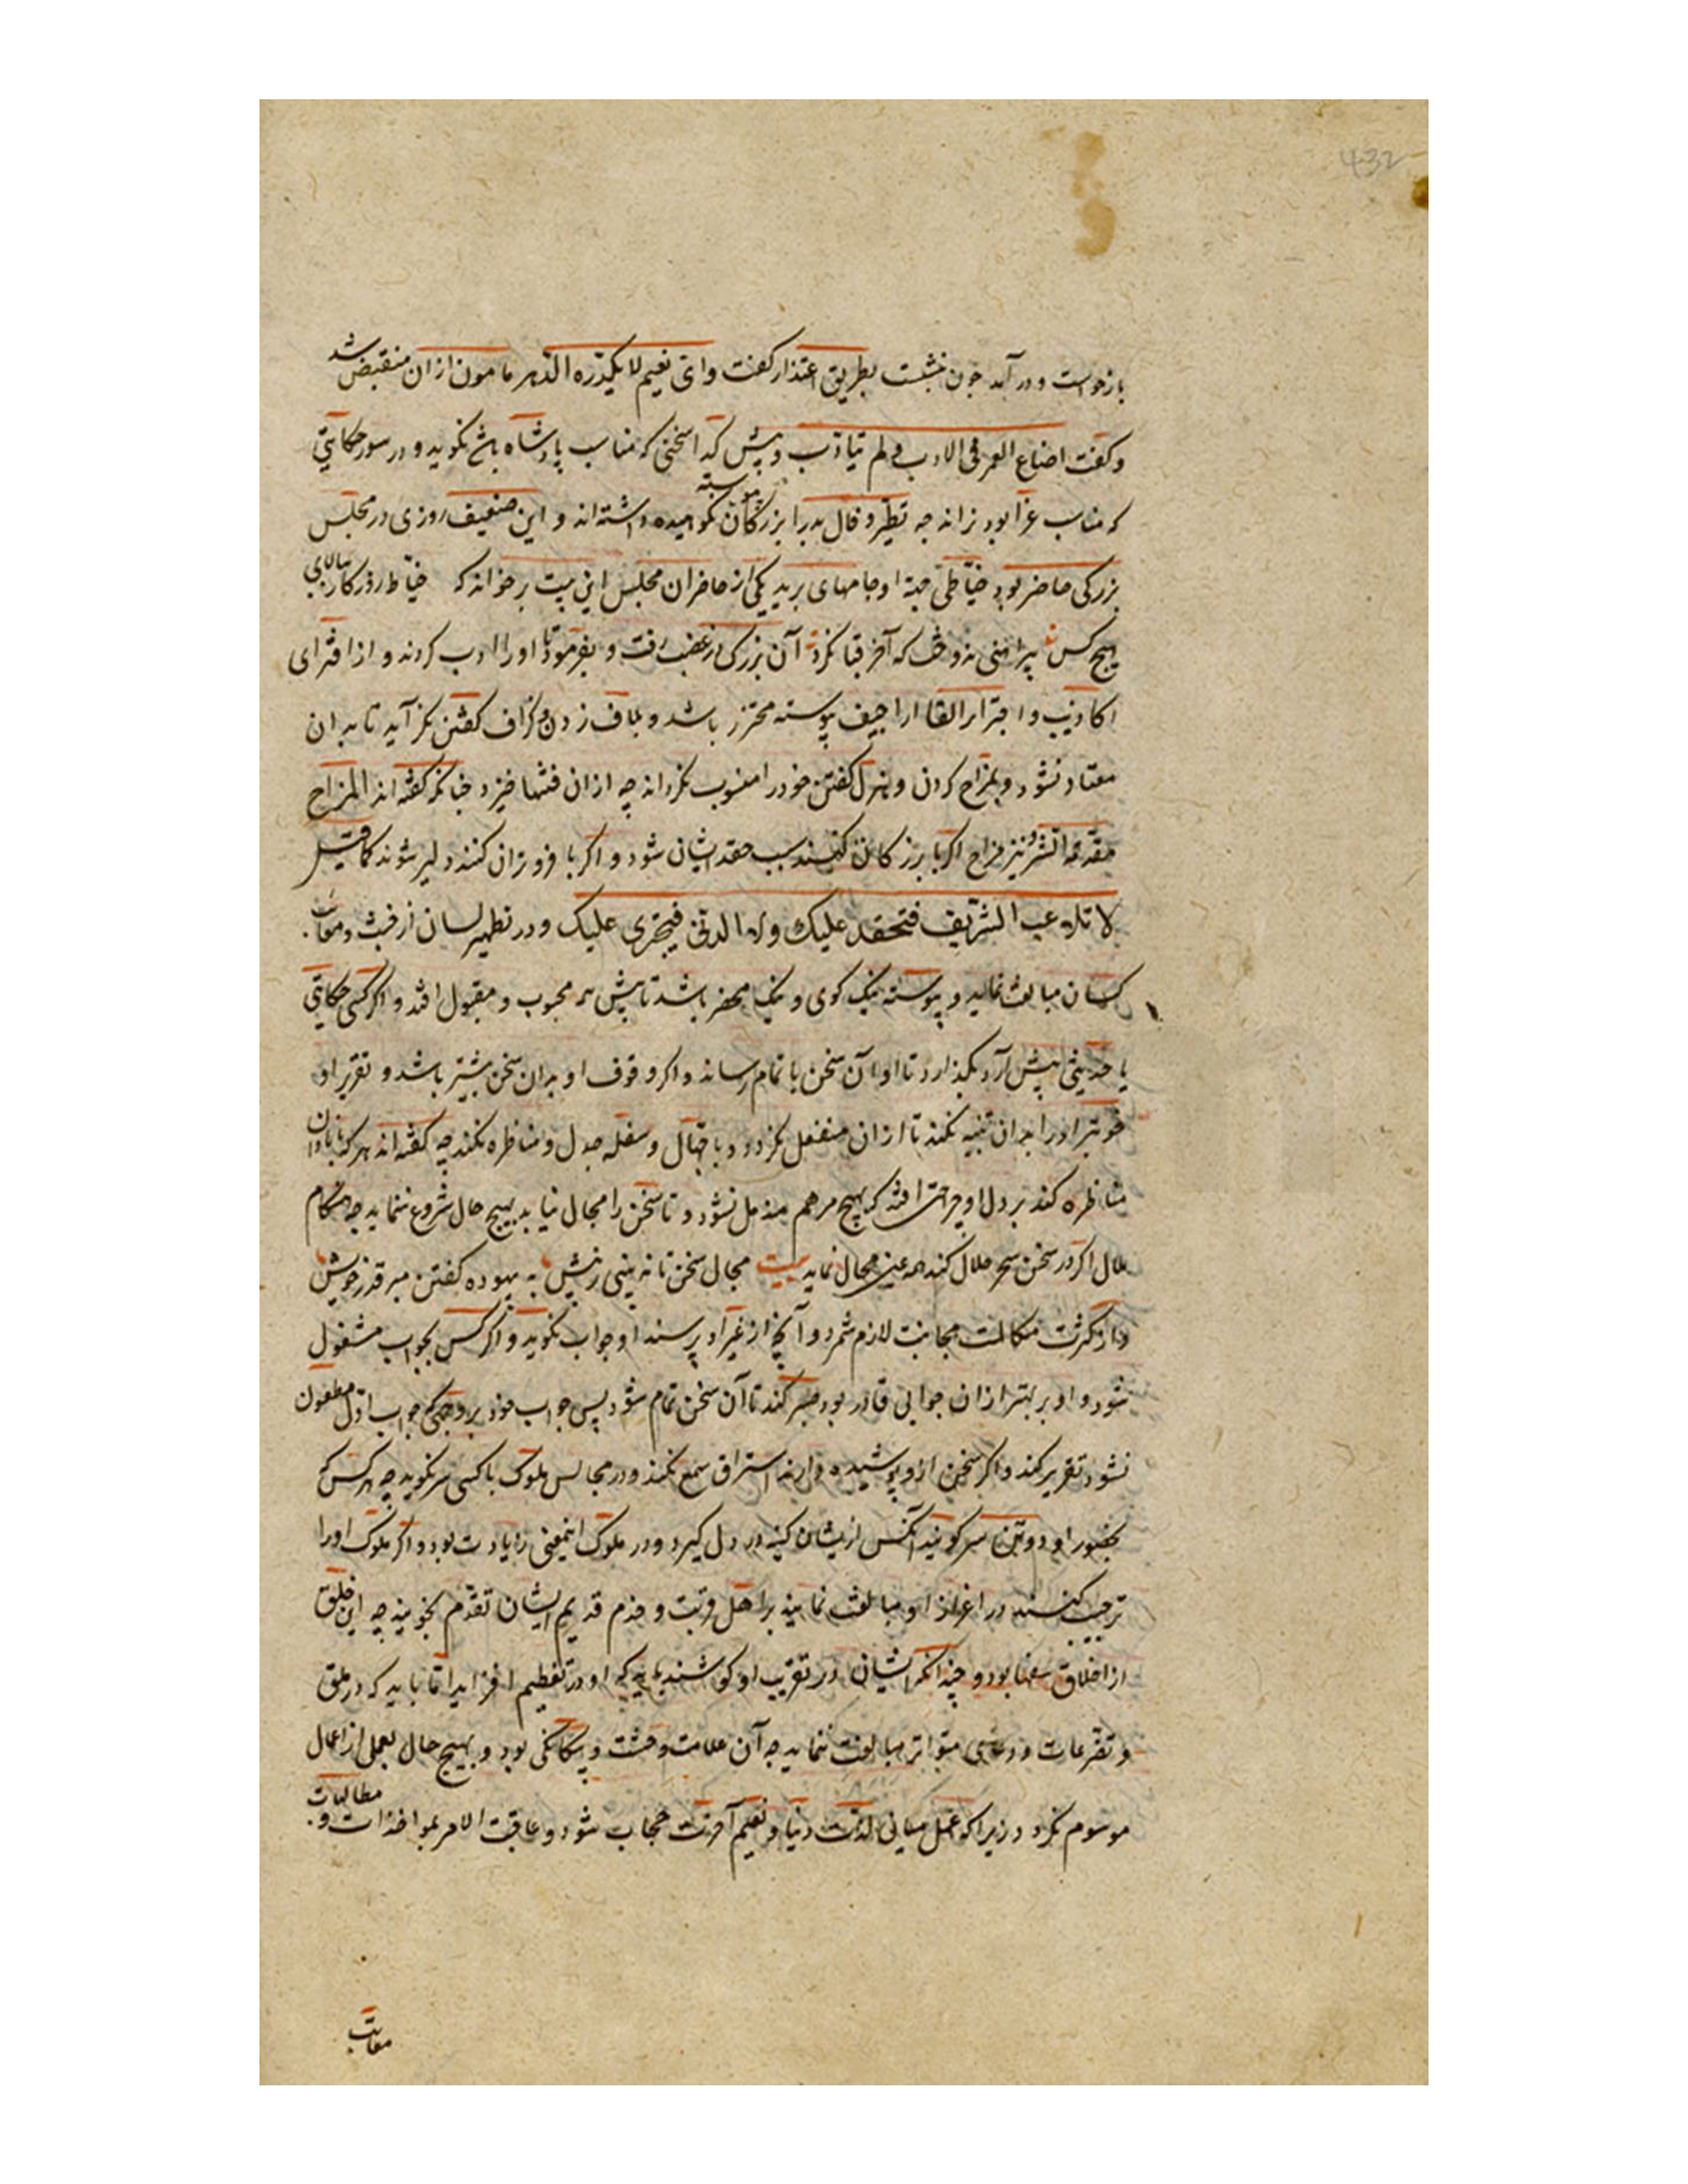 432
بازخواست و درآمد چون بنشست بطریق اعتذار کفت و ای نعیم لا یکدّره الدّهر مامون ازان منقبض شد
و کفت اضاع العمر فی الادب و لم یتأدّب و پیش کدا سخنی که مناسب پادشاه باشد نکوید و در سور حکایتی
که مناسب عزا بود نراند چه تطیّر و فال بد را بزرکان پیوسته نکوهیده داشته‌اند و این ضعیف روزی در مجلس
بزرکی حاضر بود خیّاطی جهة او جامهای برید یکی از حاضران مجلس این بیت برخواند که خیاط روزکار ببالای
هیچ کس پیراهنی ندوخت که آخر قبا نکرد آن بزرک در غضب رفت و بفرمود تا او را ادب کردند و از افترای
اکاذیب و القا اراجیف پیوسته محترز باشد و بلاف زدن و کزاف کفتن نکراید تا بدان
معتاد نشود و بمزاح کردن و هزل کفتن خود را منسوب نکرداند چه ازان فتنها خیزد چنانکه کفته‌اند المزاح
مقدمة الشر و نیز مزاح اکر با بزرکان کنند سبب حقد ایشان شود و اکر با فروتران کنند دلیر شوند کما قیل
لا تلاعب الشریف فتحقد علیک ولا الدنی فیجتری علیک و در تطهیر لسان از خبث و معایب
کسان مبالغت نماید و پیوسته نیک کوی و نیک محضر باشد تا پیش همه محبوب و مقبول افتد و اکر کسی حکایتی
یا حدیثی پیش آرد بکذارد تا او آن سخن با تمام رساند و اکر وقوف او بدان سخن بیشتر باشد و تقریر او
خوبتر او را بدان تنبیه نکند تا ازان منفعل نکردد و با جهّال و سفله جدل و مناظره نکند چه کفته‌اند هر که با نادان
مناظره کند بر دل او جراحتی افتد که بهیچ مرهم مندمل نشود و تا سخن را مجال نیابد بهیچ حال شروع ننماید چه هنکام
ملال اکر در سخن سحر حلال کند همه عین محال نماید بیت مجال سخن تا نه بینی ز پیش به بیهوده کفتن مبر قدر خویش
و از کثرت مکالمت مجانبت لازم شمرد و آنچ از غیر او پرسند او جواب نکوید و اکر کسی بجواب مشغول
شود و او بر بهتر ازان جوابی قادر بود صبر کند تا آن سخن تمام شود پس جواب خود بر وجهی که جواب اول مطعون
نشود تقریر کند و اکر سخن ازو پوشیده دارند استراق سمع نکند و در مجالس ملوک با کسی سر نکوید چه هر کس که
بحضور او دو تن با سر کویند آنکس ازیشان کینه در دل کیرد و در ملوک اینمعنی زیادت بود و اکر ملوک او را
ترحیب کنند و در اعزاز او مبالغت نمایند بر اهل قربت و خدم قدیم ایشان تقدم نجوید چه این خلق
از اخلاق سفها بود و چندانکه ایشان در تقریب او کوشند باید که او در تعظیم افزاید امّا باید که در ملق
و تضرعات و دعای متواتر مبالغت ننماید چه آن علامت وحشت و بیکانکی بود و بهیچ حال بعمل از اعمال
موسوم نکردد زیرا که عمل میانی لذت دنیا و نعیم آخرت حجاب شود و عاقبت الامر بمواخذات و مطالبات